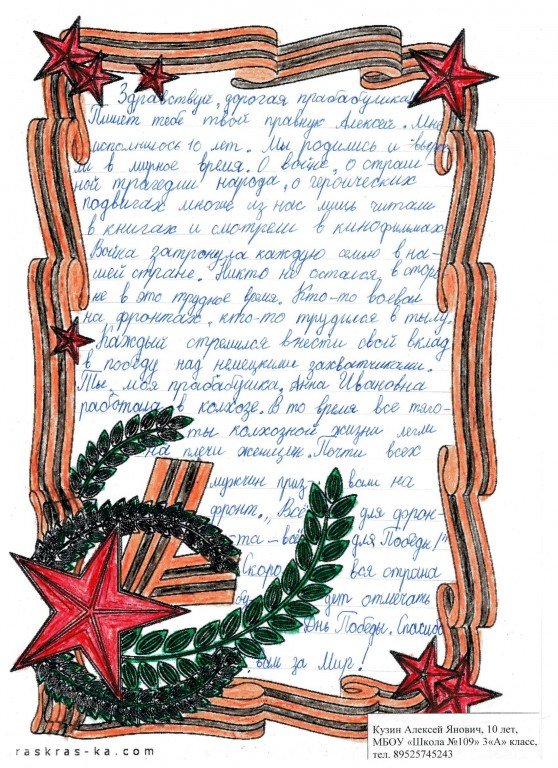 Здравствуй, дорогая прабабушка!
Пишет тебе твой правнук Алексей. Мне
исполнилось 10 лет. Мы родились и вырос
ли в мирное время. О войне, о страш
ной трагедии народа, о героических
подвигах многие из нас лишь читали
в книгах и смотрели в кинофильмах.
Война затронула каждую семью в на-
шей стране. Никто не остался в сторо
не в это трудное время. Кто-то воевал
на фронтах, кто-то трудился в тылу.
Каждый стремился внести свой вклад
в победу над немецкими захватчиками.
Ты, моя прабабушка, Анна Ивановна
работала в колхозе. В то время все тяго-
ты колхозной жизни легли
на плечи женщин. Почти всех
мужчин приз вали на
фронт. „Всё для фрон-
та – всё для Победы!"
Скоро вся страна
бу дет отмечать
День Победы. Спасибо
вам за Мир!
raskras-ka.com
Кузин Алексей Янович, 10 лет,
МБОУ «Школа №109» 3«А» класс,
тел. 89525745243